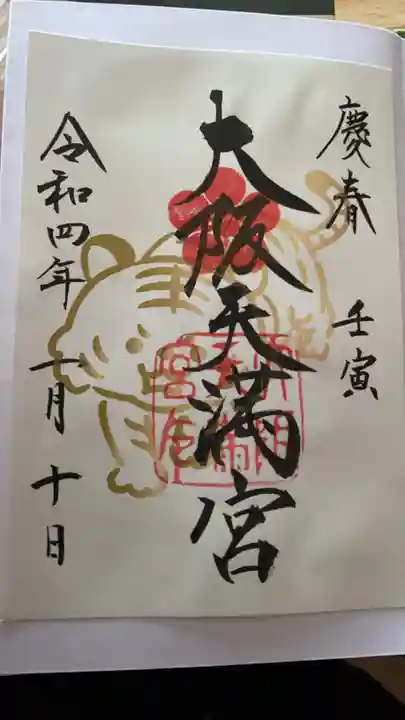 慶春 壬寅
大阪天満宮
令和四年 一月 十日